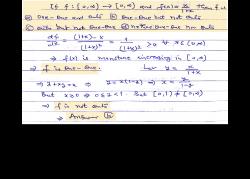 If f : [0, ∞) → [0, ∞) and f(x) = x/(1+x) then f is
one-one and onto (b) one-one but not onto
onto but not one-one (d) neither one-one nor onto
df/dx = ((1+x) - x)/(1+x)² = 1/(1+x)² > 0 ∀ x ∈ [0, ∞)
⇒ f(x) is monotonic increasing in [0, ∞)
⇒ f is one-one. Let y = x/(1+x)
⇒ y + xy = x ⇒ y = x(1-y) ⇒ x = y/(1-y)
But x ≥ 0 ⇒ 0 ≤ y < 1. But [0, 1) ≠ [0, ∞)
⇒ f is not onto
⇒ Answer (b)